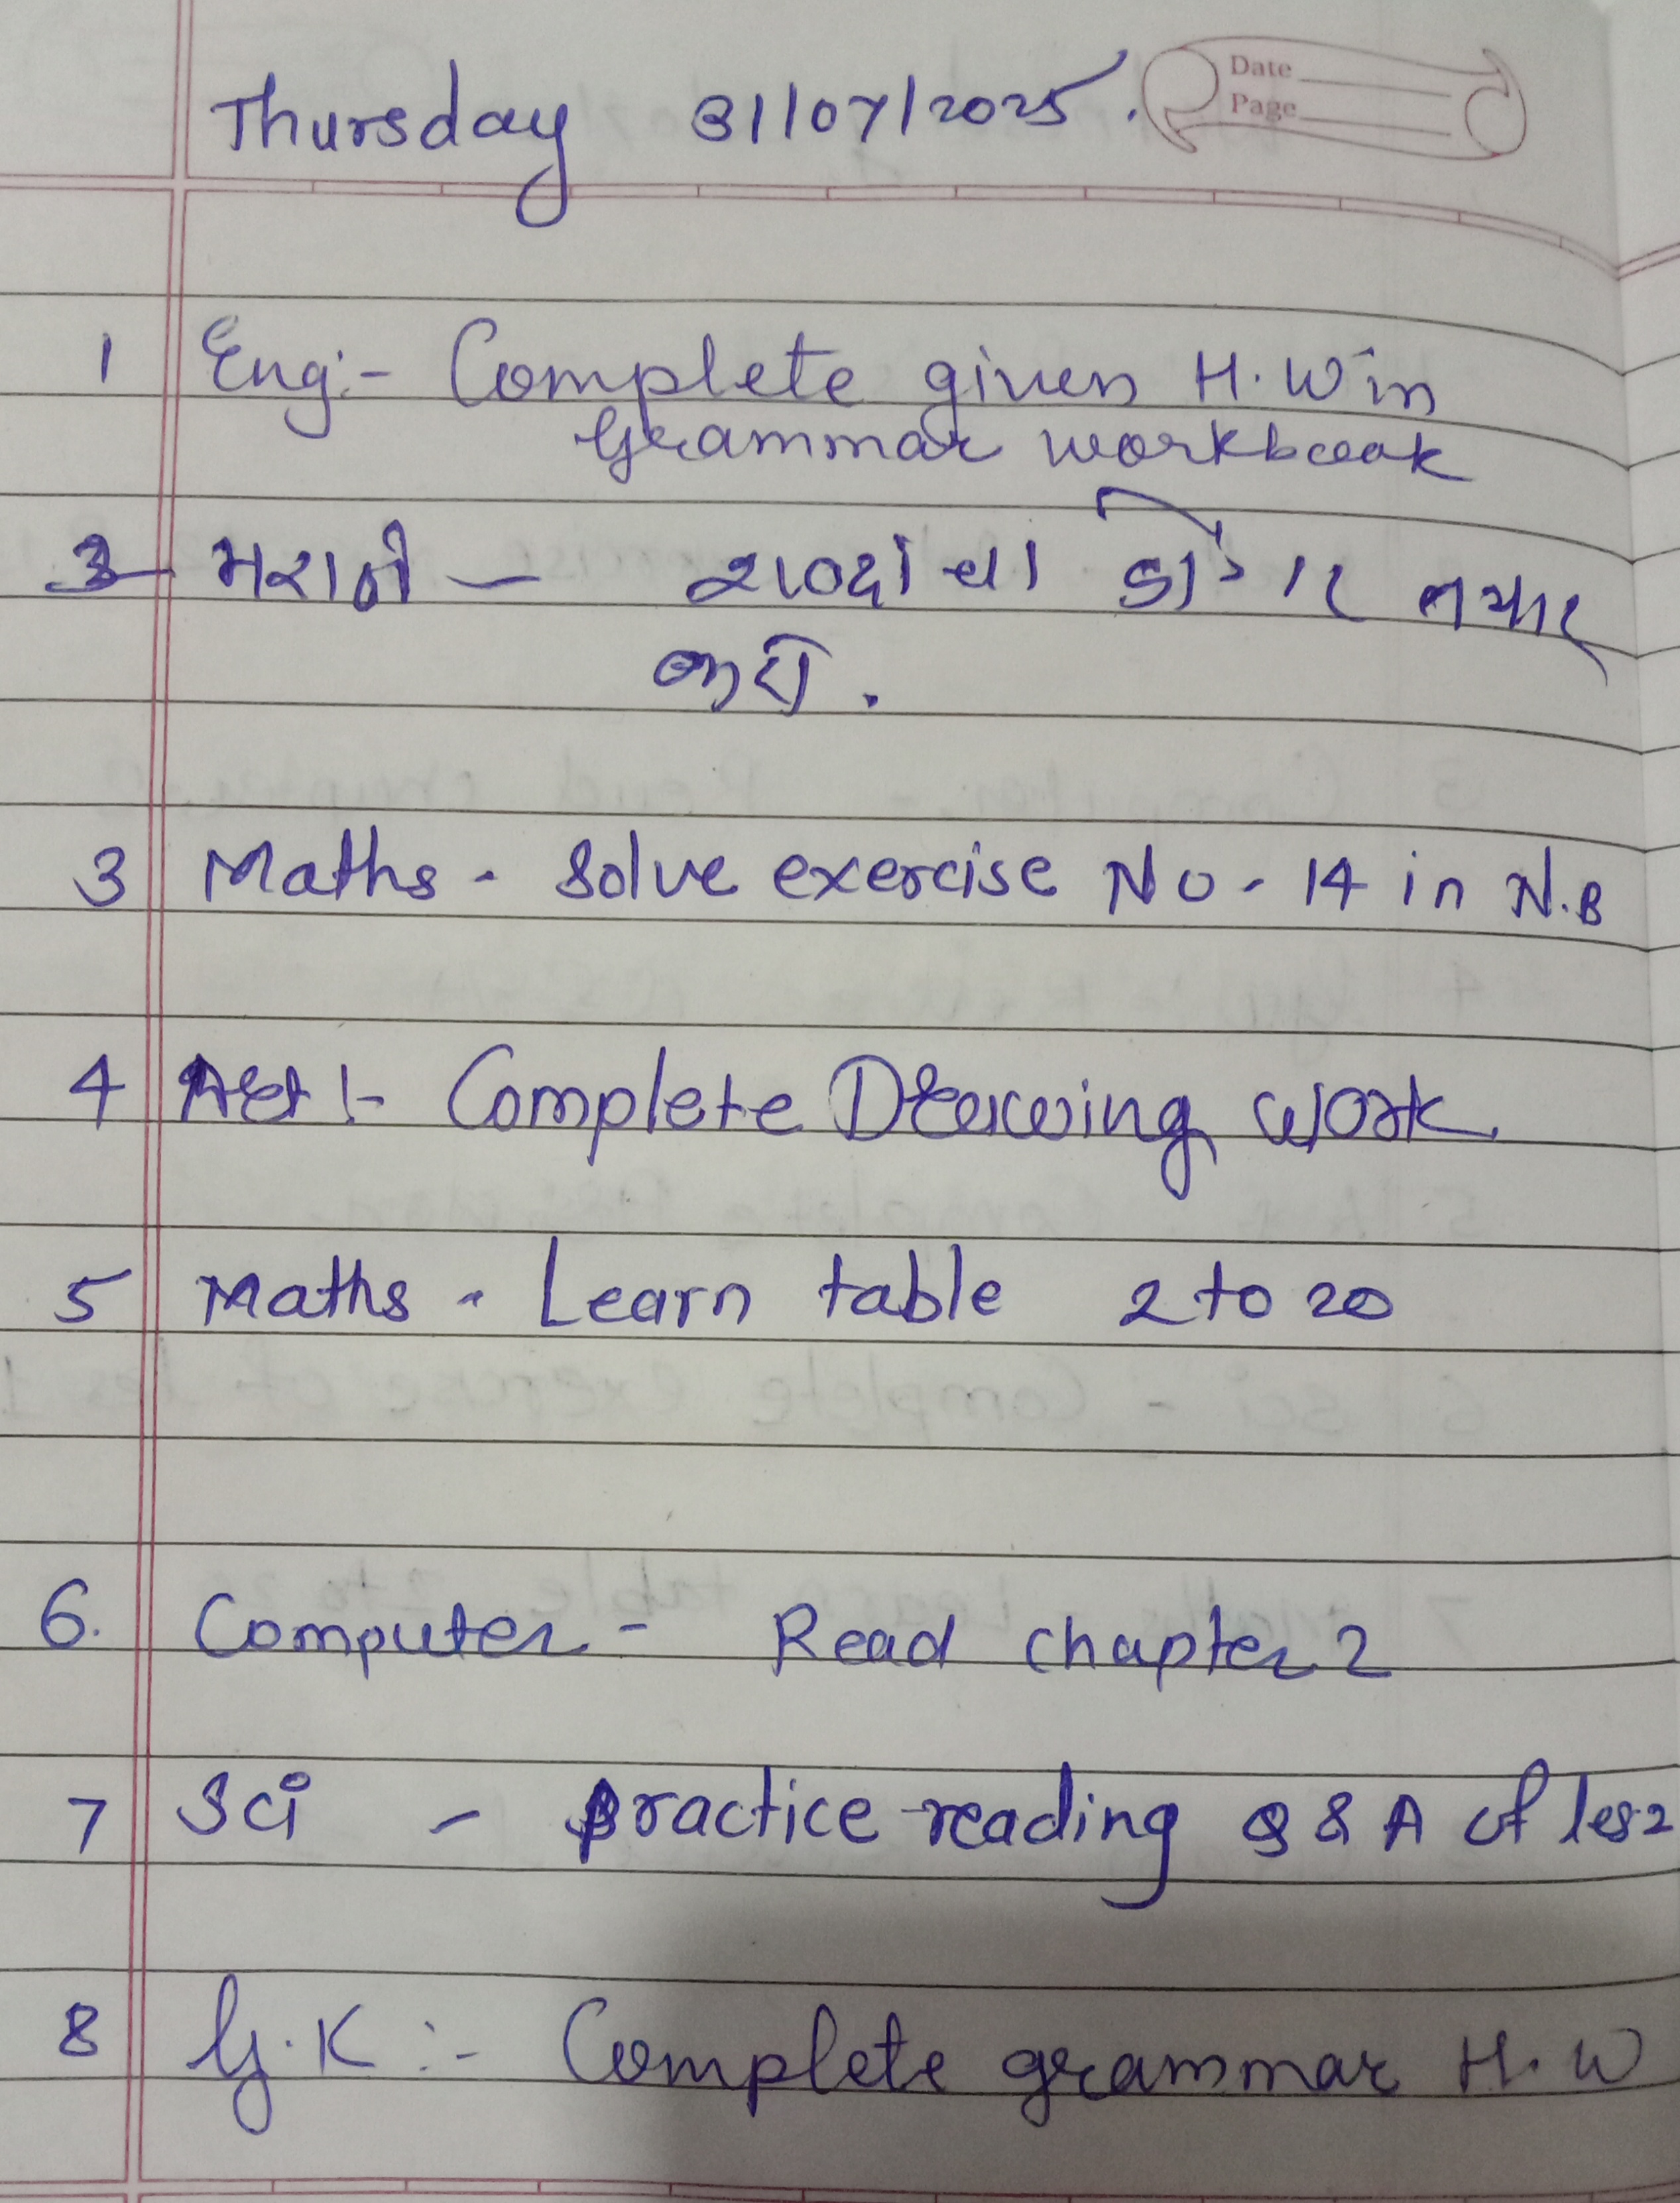 Thursday 31/07/2025.
Date
Page
1 Eng:- Complete given H.W in
Grammar workbook
3 मराठी - शब्दांचा डोंगर तयार
करा.
3 Maths - Solve exercise No - 14 in N.B
4 Art :- Complete Drawing work.
5 Maths - Learn table 2 to 20
6. Computer - Read chapter 2
7 Sci - practice reading Q & A of les 2
8 G.K :- Complete grammar H.W